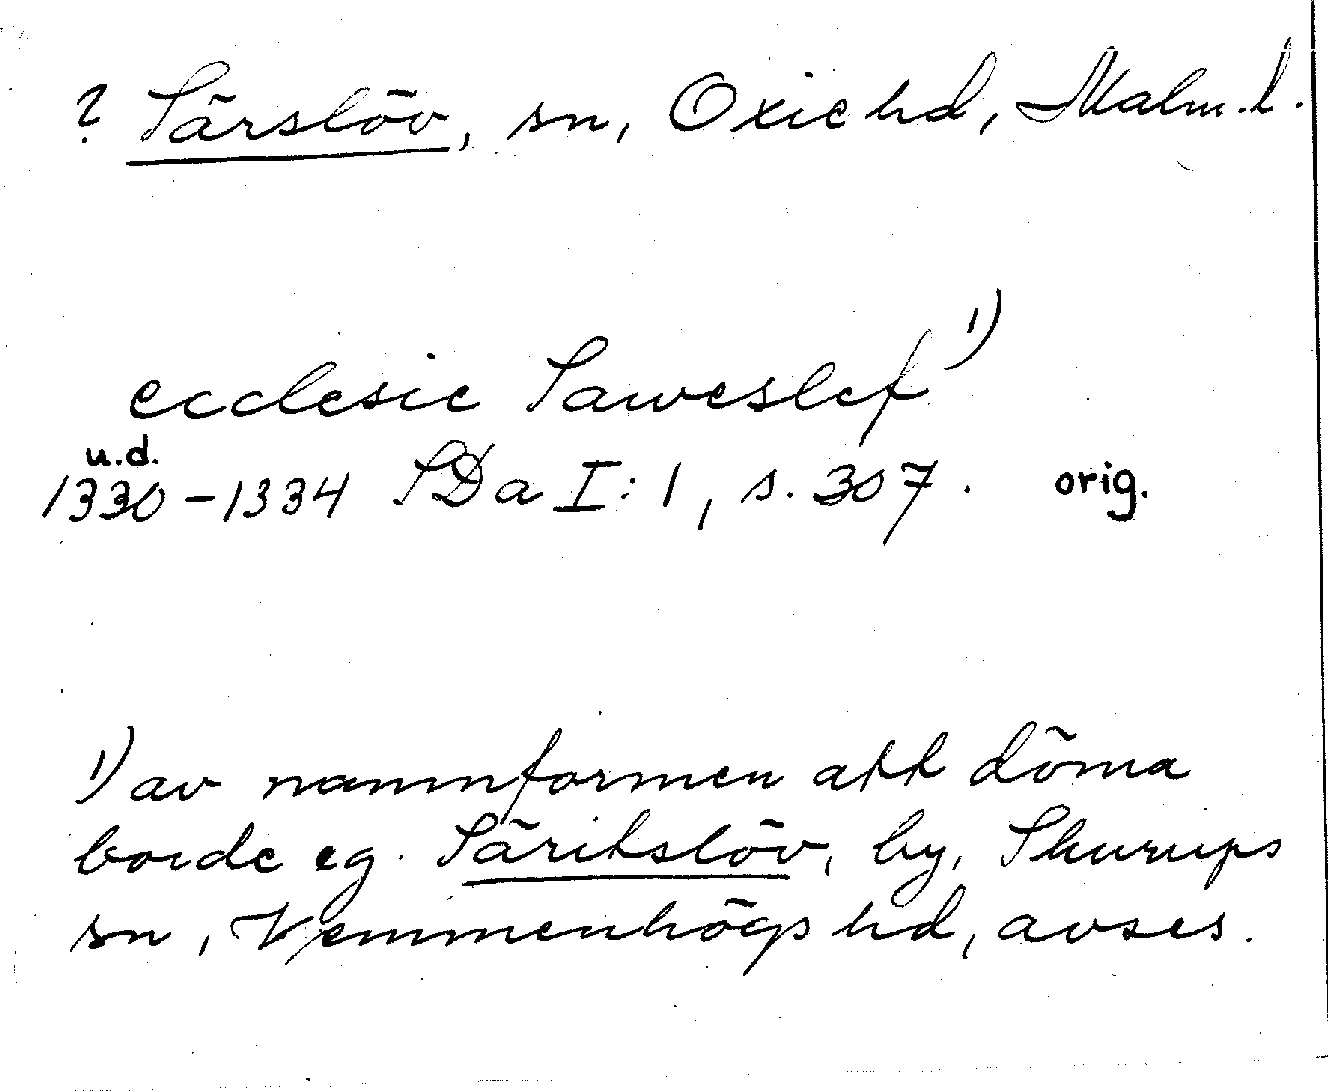 ? Särslöv, sn, Oxie hd, Malm. l.
ecclesie Saweslef 1)
u.d.
1330-1334 SDa I:1, s. 307. orig.
1) av namnformen att döma
borde eg. Säritslöv, by, Skurups
sn, Vemmenhögs hd, avses.